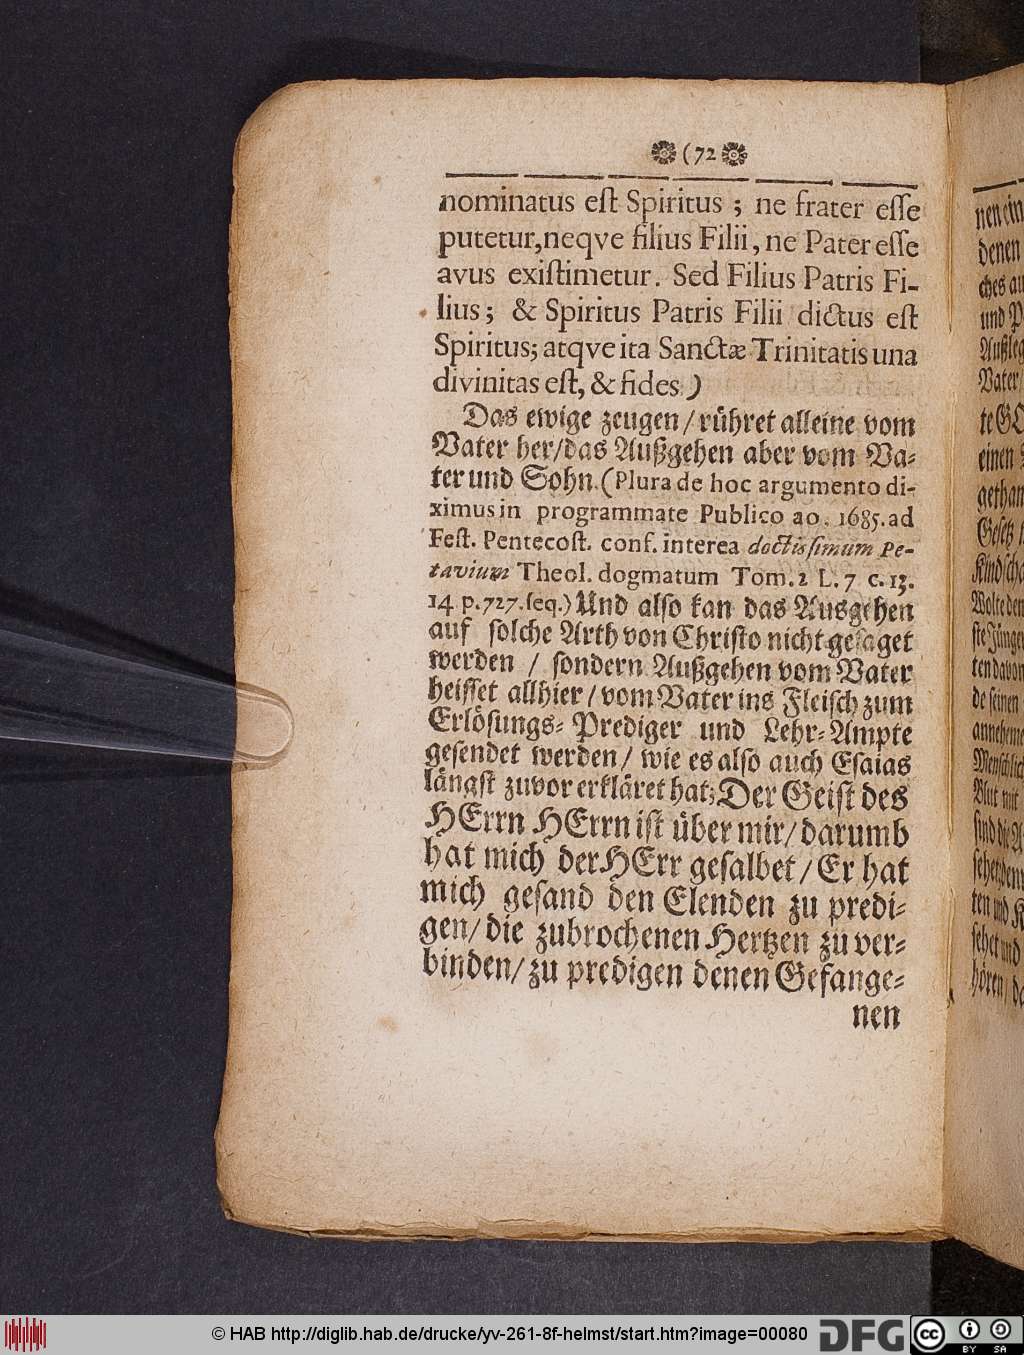 (72
nominatus eſt Spiritus ; ne frater eſſe
putetur, neqve filius Filii, ne Pater eſſe
avus exiſtimetur. Sed Filius Patris Fi-
lius; & Spiritus Patris Filii dictus eſt
Spiritus; atqve ita Sanctæ Trinitatis una
divinitas eſt, & fides )
Das ewige zeugen / rühret alleine vom
Vater her/das Außgehen aber vom Va-
ter und Sohn. (Plura de hoc argumento di-
ximus in programmate Publico ao. 1685. ad
Feſt. Pentecoſt. conf. interea doctiſſimum Pe-
tavium Theol. dogmatum Tom. 2 L. 7 c. 13.
14 p. 727. ſeq.) Und alſo kan das Ausgehen
auf ſolche Arth von Chriſto nicht geſaget
werden / ſondern Außgehen vom Vater
heiſſet allhier / vom Vater ins Fleiſch zum
Erlöſungs- Prediger und Lehr-Ampte
geſendet werden / wie es alſo auch Eſaias
längſt zuvor erkläret hat; Der Geiſt des
HErrn HErrn iſt über mir/ darumb
hat mich der HErr geſalbet / Er hat
mich geſand den Elenden zu predi-
gen/ die zubrochenen Hertzen zu ver-
binden/ zu predigen denen Gefange-
nen
nen ein
denen
ches au
und P
Außleg
Vater/
einen
gethan
Geſetz
Kindſcha
Wolte den
ſte Jünger
ten davon
de ſeinen
annehme
Menſchlic
Blut mit
ſind die A
ten und K
ſehet und
hören / de
© HAB http://diglib.hab.de/drucke/yv-261-8f-helmst/start.htm?image=00080
DFG
cc
BY SA